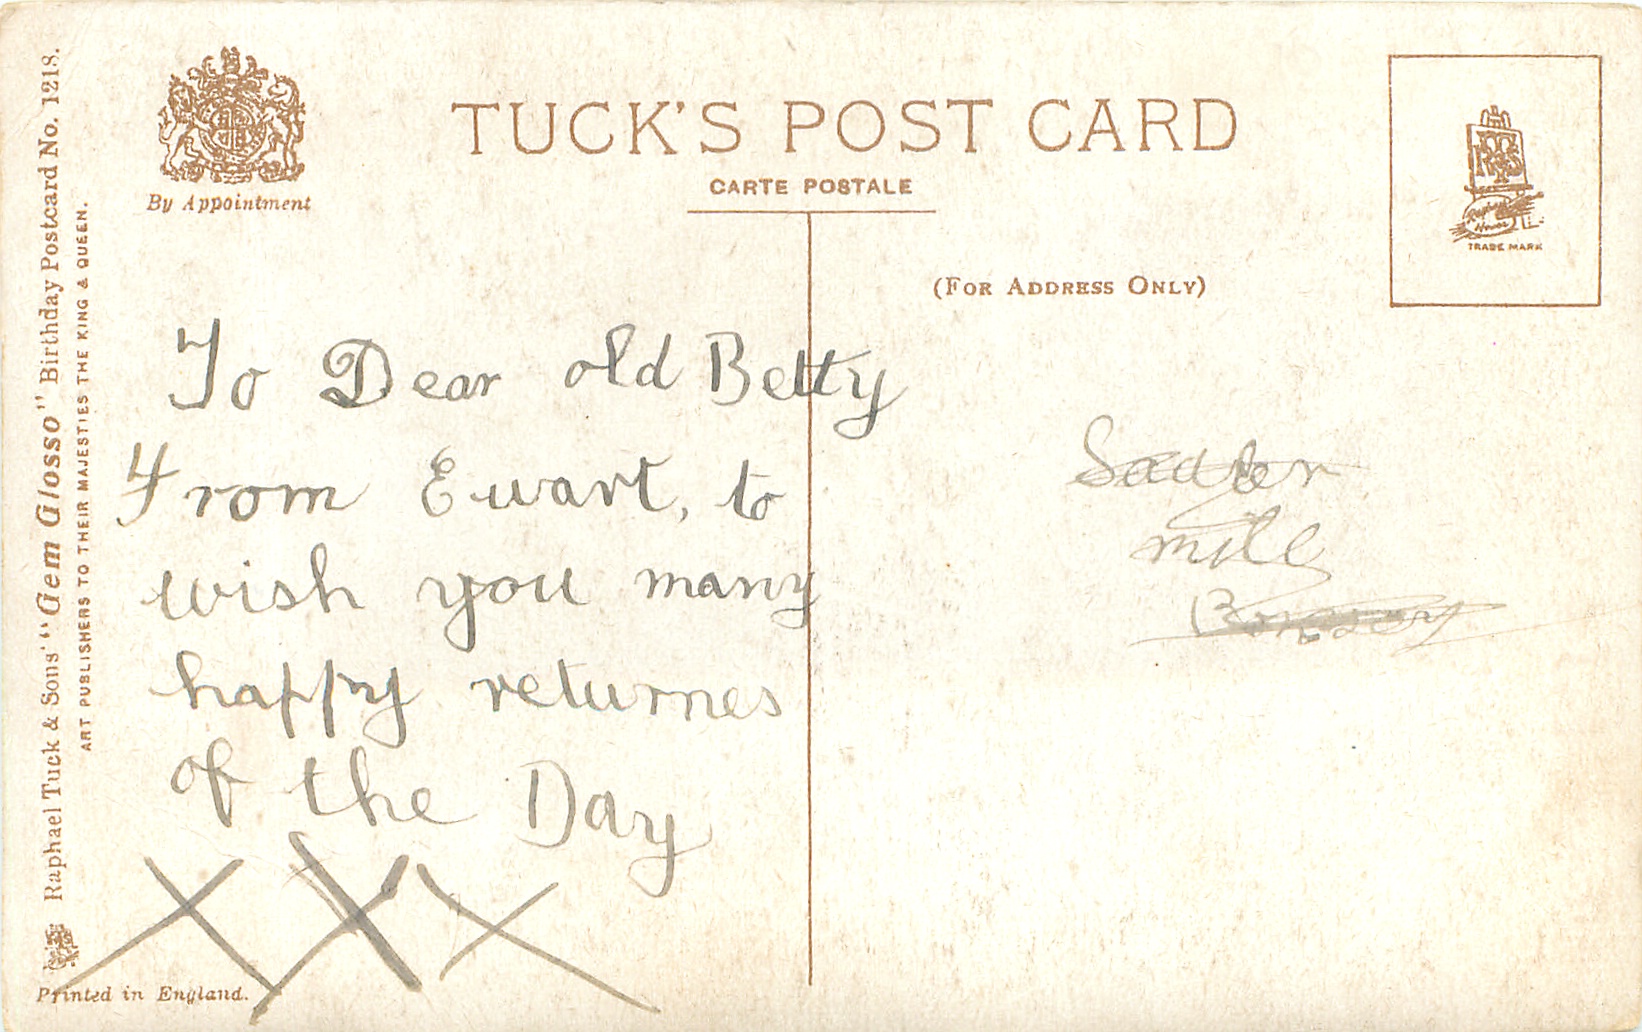 TUCK'S POST CARD
CARTE POSTALE
By Appointment
(FOR ADDRESS ONLY)
TRADE MARK
Raphael Tuck & Sons' "Gem Glosso" Birthday Postcard No. 1218.
ART PUBLISHERS TO THEIR MAJESTIES THE KING & QUEEN.
To Dear old Betty
From Ewart, to
wish you many
happy returnes
of the Day
XXX
Printed in England.